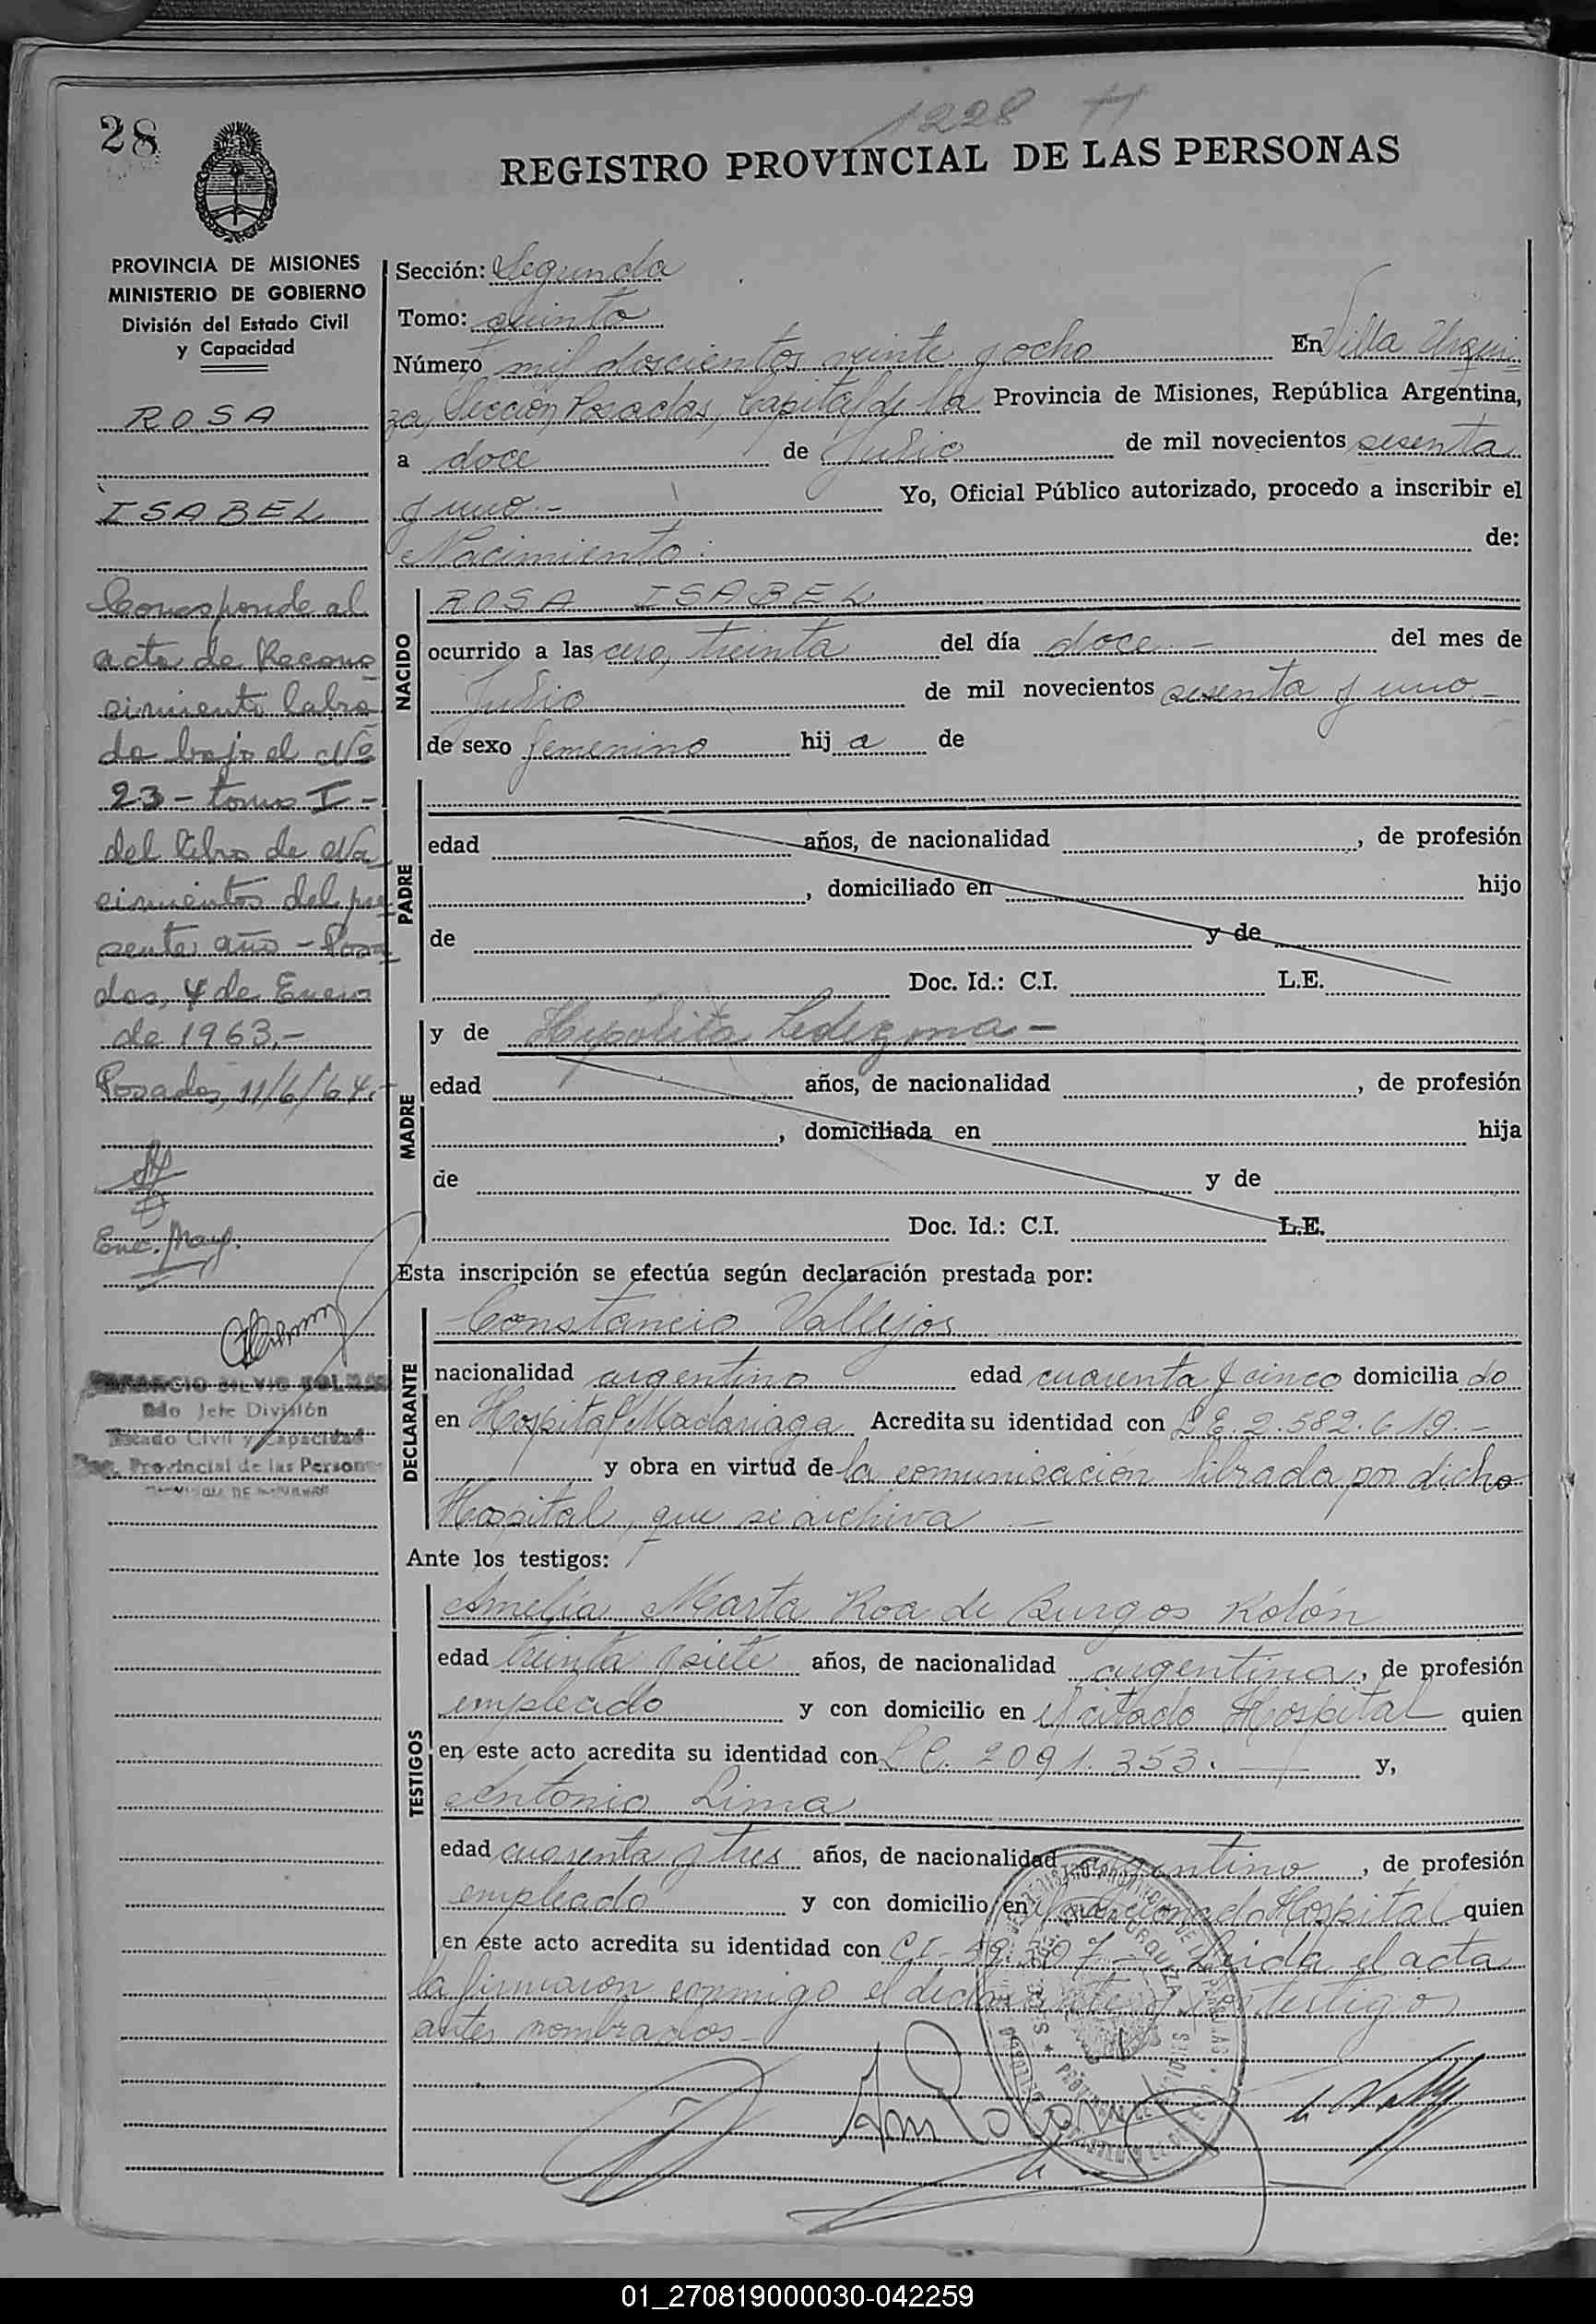 28
1228
REGISTRO PROVINCIAL DE LAS PERSONAS
PROVINCIA DE MISIONES
MINISTERIO DE GOBIERNO
División del Estado Civil
y Capacidad
ROSA
ISABEL
Corresponde al
acta de Recono
cimiento labra
da bajo el Nº
23 - tomo I -
del libro de Na
cimientos del pre
sente año - Posa
das, 4 de Enero
de 1963.-
Posadas, 11/6/64.-
Enc. May.
2do Jefe División
Estado Civil y Capacidad
Reg. Provincial de las Personas
Sección: Segunda
Tomo: quinto
Número mil doscientos veinte y ocho En Villa Urqui
za, Sección Posadas, Capital de la Provincia de Misiones, República Argentina,
a doce de Julio de mil novecientos sesenta
y uno.- Yo, Oficial Público autorizado, procedo a inscribir el
Nacimiento de:
NACIDO
ROSA ISABEL
ocurrido a las cero, treinta del día doce.- del mes de
Julio de mil novecientos sesenta y uno-
de sexo femenino hij a de
PADRE
edad años, de nacionalidad , de profesión
, domiciliado en hijo
de y de
Doc. Id.: C.I. L.E.
MADRE
y de Hipólita Ledezma -
edad años, de nacionalidad , de profesión
, domiciliada en hija
de y de
Doc. Id.: C.I. L.E.
Esta inscripción se efectúa según declaración prestada por:
DECLARANTE
Constancio Vallejos
nacionalidad argentino edad cuarenta y cinco domicilia do
en Hospital Madariaga Acredita su identidad con L.E. 2.582.619.-
y obra en virtud de la comunicación librada por dicho
Hospital, que se archiva.-
Ante los testigos:
TESTIGOS
Amelia Marta Roa de Burgos Kolón
edad treinta y siete años, de nacionalidad argentina, de profesión
empleado y con domicilio en el citado Hospital quien
en este acto acredita su identidad con L.C. 2091.353.- y,
Antonio Lima
edad cuarenta y tres años, de nacionalidad argentino , de profesión
empleado y con domicilio en el mencionado Hospital quien
en este acto acredita su identidad con C.I- Leida el acta
la firmaron conmigo el declarante y los testigos
antes nombrados-
01_270819000030-042259